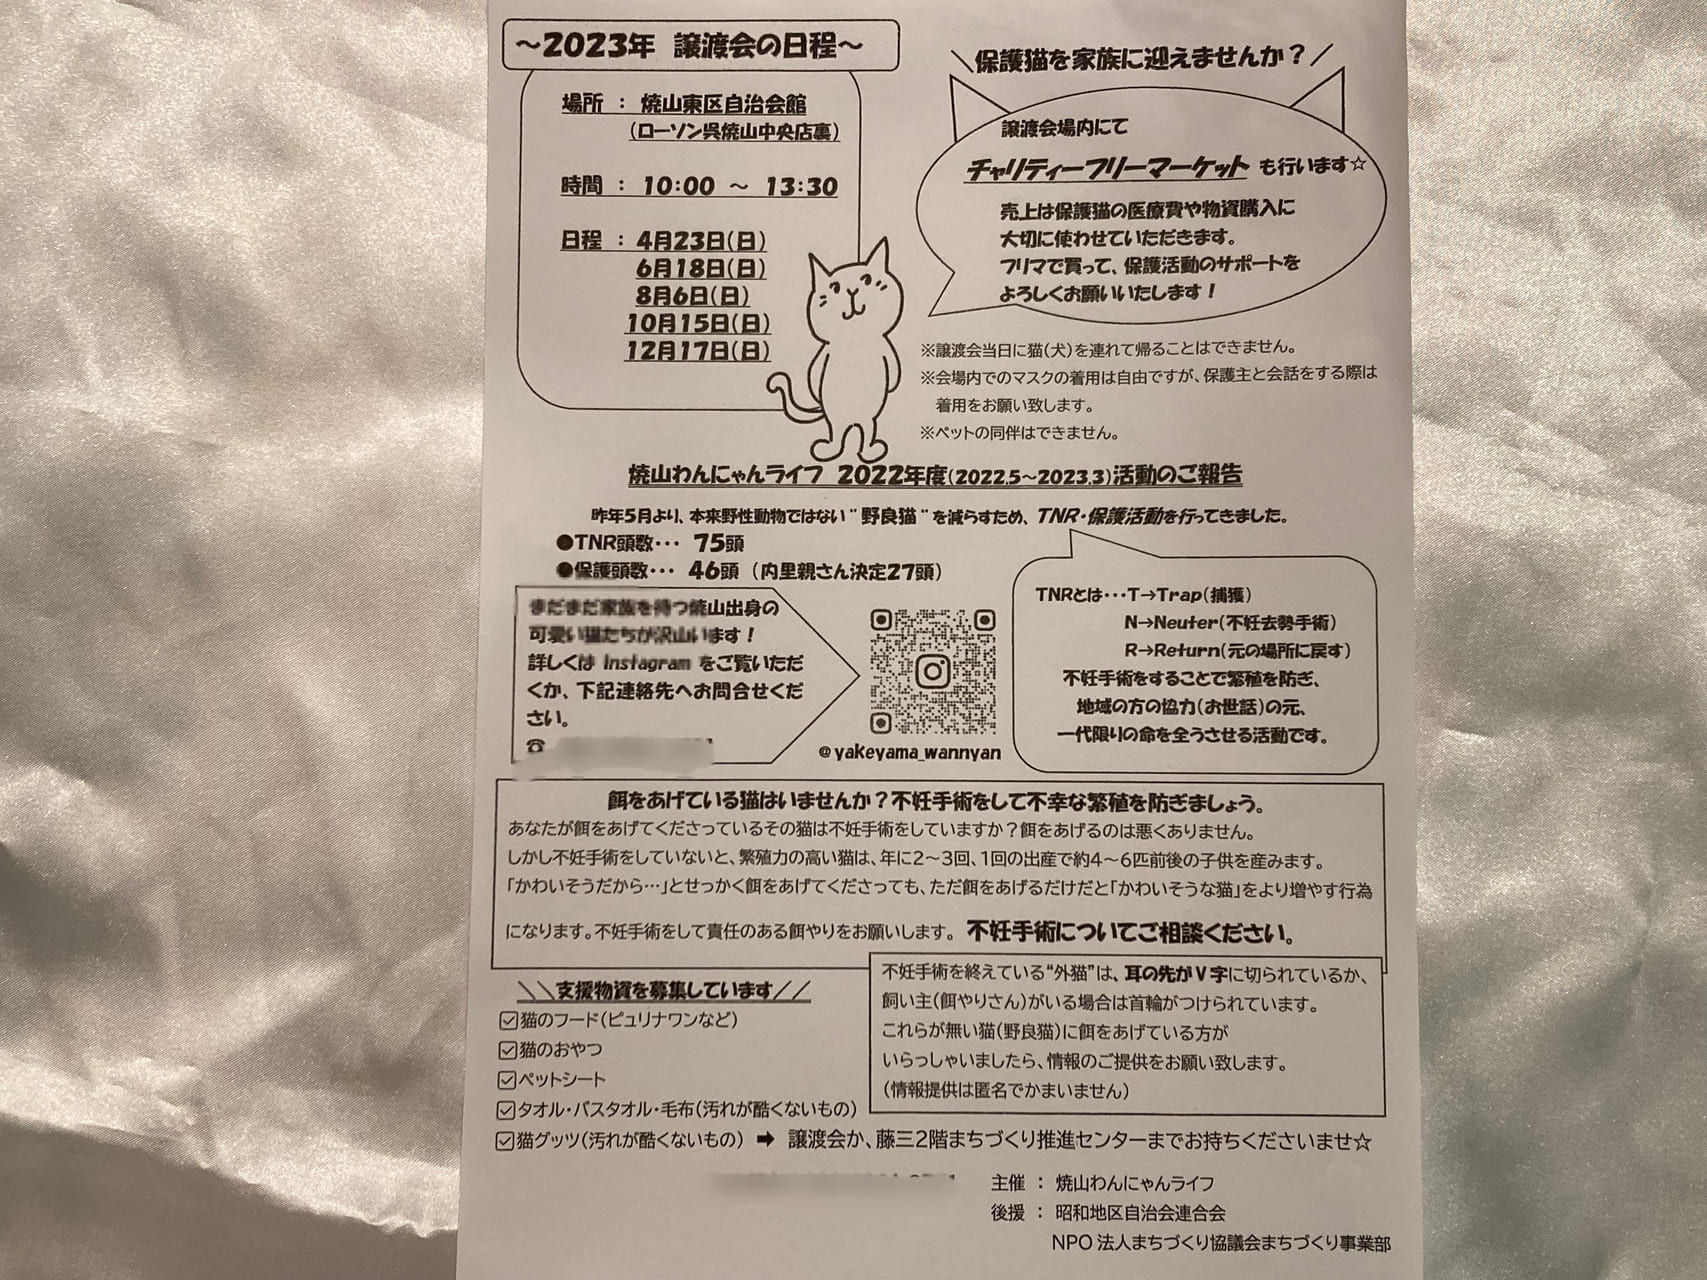 ～2023年 譲渡会の日程～
場所 ： 焼山東区自治会館
（ローソン呉焼山中央店裏）
時間 ： 10：00 ～ 13：30
日程 ： 4月23日（日）
6月18日（日）
8月6日（日）
10月15日（日）
12月17日（日）
＼保護猫を家族に迎えませんか？／
譲渡会場内にて
チャリティーフリーマーケット も行います☆
売上は保護猫の医療費や物資購入に
大切に使わせていただきます。
フリマで買って、保護活動のサポートを
よろしくお願いいたします！
※譲渡会当日に猫（犬）を連れて帰ることはできません。
※会場内でのマスクの着用は自由ですが、保護主と会話をする際は
着用をお願い致します。
※ペットの同伴はできません。
焼山わんにゃんライフ 2022年度（2022.5～2023.3）活動のご報告
昨年5月より、本来野性動物ではない“野良猫”を減らすため、TNR・保護活動を行ってきました。
●TNR頭数・・・ 75頭
●保護頭数・・・ 46頭（内里親さん決定27頭）
まだまだ家族を待つ焼山出身の
可愛い猫たちが沢山います！
詳しくは Instagram をご覧いただ
くか、下記連絡先へお問合せくだ
さい。
☎
@yakeyama_wannyan
TNRとは・・・T→Trap（捕獲）
N→Neuter（不妊去勢手術）
R→Return（元の場所に戻す）
不妊手術をすることで繁殖を防ぎ、
地域の方の協力（お世話）の元、
一代限りの命を全うさせる活動です。
餌をあげている猫はいませんか？不妊手術をして不幸な繁殖を防ぎましょう。
あなたが餌をあげてくださっているその猫は不妊手術をしていますか？餌をあげるのは悪くありません。
しかし不妊手術をしていないと、繁殖力の高い猫は、年に2～3回、1回の出産で約4～6匹前後の子供を産みます。
「かわいそうだから…」とせっかく餌をあげてくださっても、ただ餌をあげるだけだと「かわいそうな猫」をより増やす行為
になります。不妊手術をして責任のある餌やりをお願いします。 不妊手術についてご相談ください。
＼＼支援物資を募集しています／／
☑猫のフード（ピュリナワンなど）
☑猫のおやつ
☑ペットシート
☑タオル・バスタオル・毛布（汚れが酷くないもの）
☑猫グッツ（汚れが酷くないもの） ➡ 譲渡会か、藤三2階まちづくり推進センターまでお持ちくださいませ☆
不妊手術を終えている“外猫”は、耳の先がV字に切られているか、
飼い主（餌やりさん）がいる場合は首輪がつけられています。
これらが無い猫（野良猫）に餌をあげている方が
いらっしゃいましたら、情報のご提供をお願い致します。
（情報提供は匿名でかまいません）
主催 ： 焼山わんにゃんライフ
後援 ： 昭和地区自治会連合会
NPO 法人まちづくり協議会まちづくり事業部